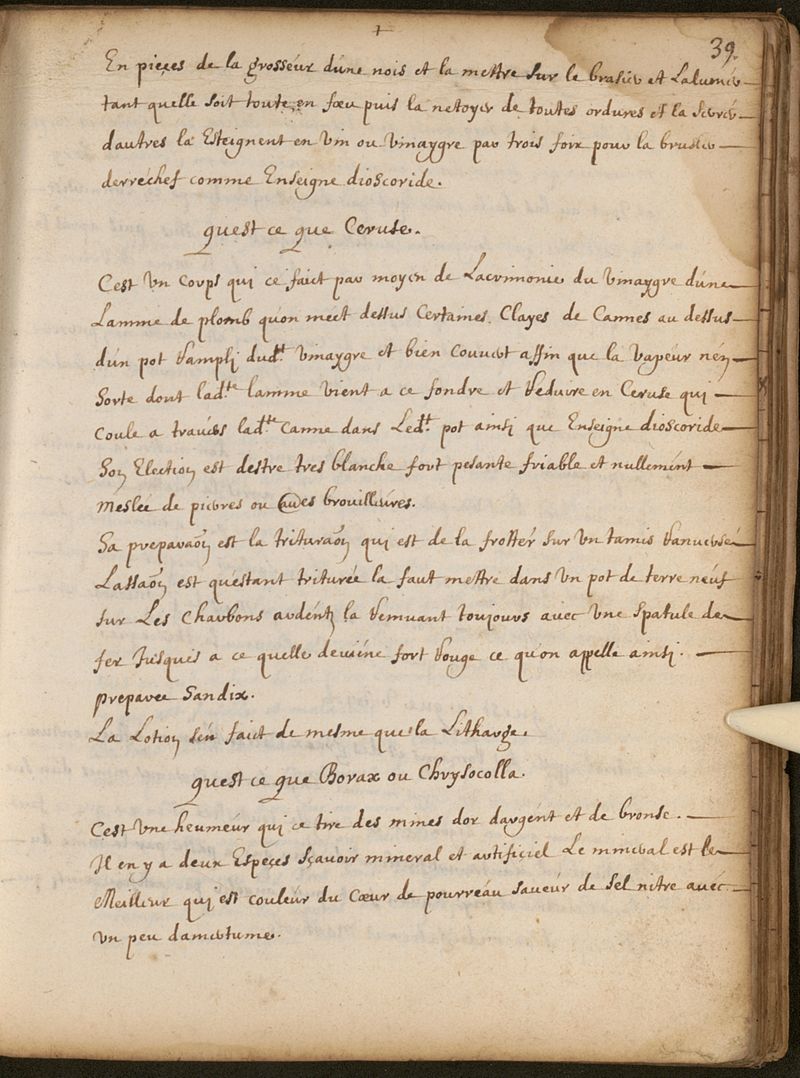 +
39.
En pieces de la grosseur dúne nois et la mettre sur le brasier et Lalumer
tant quelle soit toute en foeu puis la netoyer de toutes ordures et la serrer
dautres la Esteignent en vin ou vinaygre par trois foix pour la brusler
derrechef comme Enseigne dioscoride.
quest ce que Ceruse.
Cest vn corps qui ce faict par moyen de Lacrimonie du vinaygre dúne
Lamme de plomb quon mect dessus Certaines Clayes de Cannes au dessus
dún pot rampli dudt vinaygre et bien couuert affin que la vapeur nen
Sorte dont ladte lamme vient a ce fondre et reduire en Ceruse qui
Coule a trauers ladte Canne dans Ledt pot ainsi que Enseigne dioscoride
Son Election est destre tres blanche fort pesante friable et nullement
Meslée de pierres ou aues brouilleures.
Sa preparaon est la trituraon qui est de la frotter sur vn tamis ranuersé
Lassaon est questant triturée la faut mettre dans vn pot de terre neuf
sur Les Charbons ardents la remuant toujours auec vne spatule de
fer Jusques a ce quelle deuiene fort rouge ce qu'on appelle ainsi
preparee Sandix.
La Lotion sén faict de mesme que la Litharge.
quest ce que Borax ou Chrysocolla.
Cest vne heumeur qui ce tire des mines dor dargent et de bronse.
Il en y a deux Especes sçauoir mineral et artificiel Le mineral est le
Meilleur qui est couleur du Cœur de pourreau saueur de sel nitre auec
vn peu damertume.